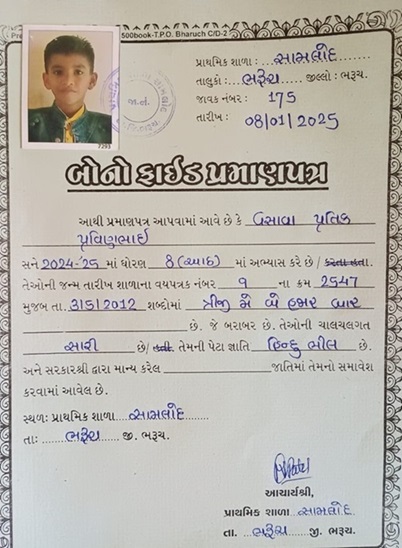 500book-T.P.O. Bharuch C/D-2
પ્રાથમિક શાળા : સામલોદ
તાલુકો : ભરૂચ જીલ્લો : ભરૂચ.
જાવક નંબર : 175
તારીખ : 08/01/2025
7293
બોનોફાઈડ પ્રમાણપત્ર
આથી પ્રમાણપત્ર આપવામાં આવે છે કે વસાવા પ્રતિક
પ્રવિણભાઈ
સને 2024-'25 માં ધોરણ 8 (આઠ) માં અભ્યાસ કરે છે / કરતા હતા.
તેઓની જન્મ તારીખ શાળાના વયપત્રક નંબર 9 ના ક્રમ 2547
મુજબ તા. 3/5/2012 શબ્દોમાં ત્રીજી મે બે હજાર બાર
છે. જે બરાબર છે. તેઓની ચાલચલગત
સારી છે/ હતી. તેમની પેટા જ્ઞાતિ હિન્દુ ભીલ છે.
અને સરકારશ્રી દ્વારા માન્ય કરેલ જાતિમાં તેમનો સમાવેશ
કરવામાં આવેલ છે.
સ્થળ: પ્રાથમિક શાળા સામલોદ
તાઃ ભરૂચ જી. ભરૂચ.
આચાર્યશ્રી,
પ્રાથમિક શાળા સામલોદ
તા. ભરૂચ જી. ભરૂચ.